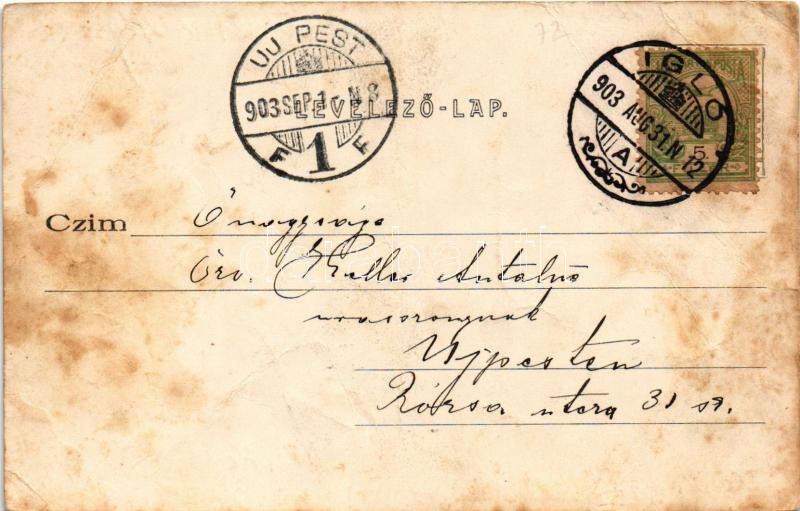 72
UJ PEST
903 SEP. 1 - N 8
F 1 F
IGLÓ
903 AUG. 31. N 12
A
5
LEVELEZŐ-LAP.
Czim Önagysága
Özv. Keller Antalné
urasszonynak
Ujpesten
Rózsa utcza 31 sz.